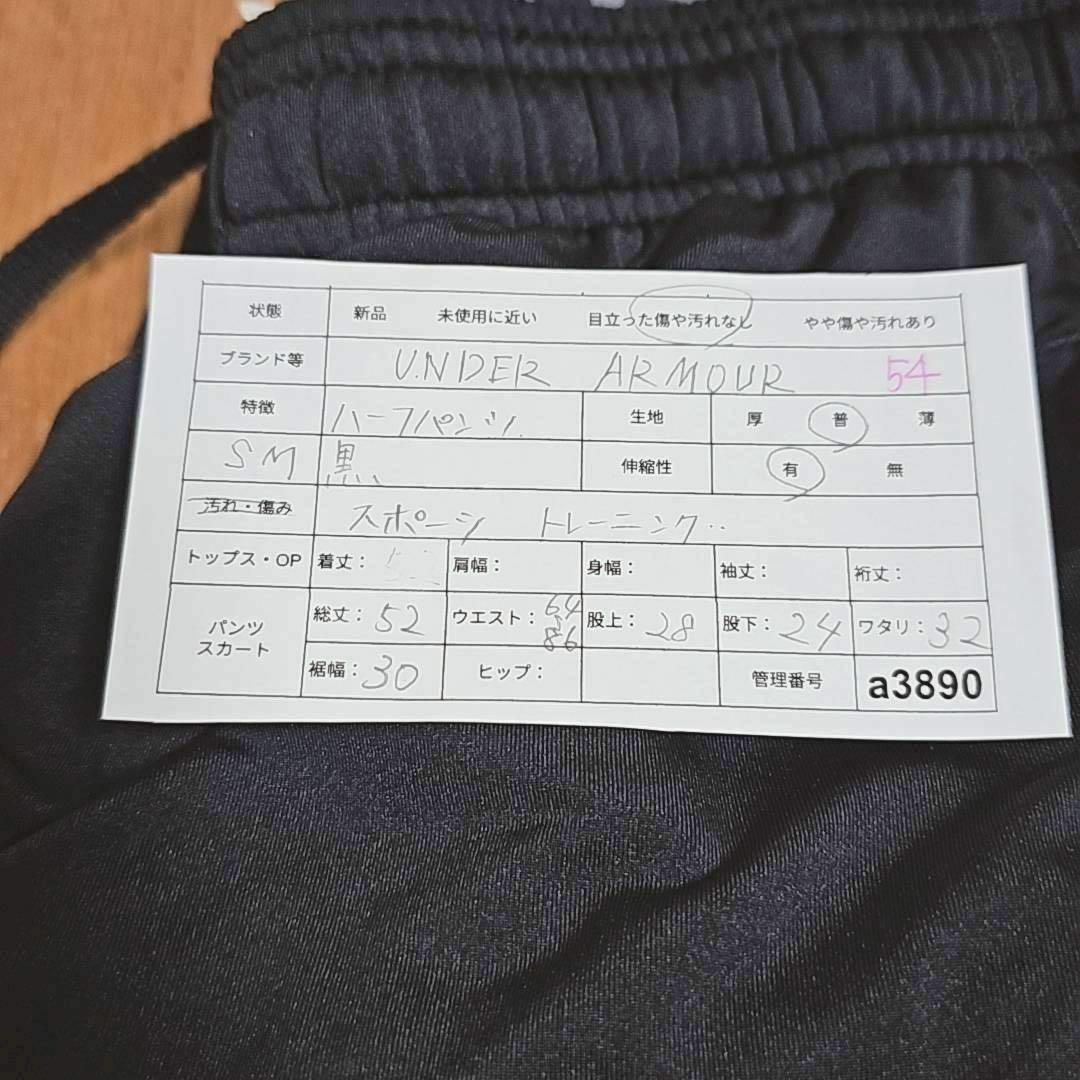 状態 新品 未使用に近い 目立った傷や汚れなし やや傷や汚れあり
ブランド等 UNDER ARMOUR 54
特徴 ハーフパンツ 生地 厚 普 薄
SM 黒 伸縮性 有 無
汚れ・傷み スポーツ トレーニング
トップス・OP 着丈: 肩幅: 身幅: 袖丈: 裄丈:
パンツ スカート 総丈:52 ウエスト:64 86 股上:28 股下:24 ワタリ:32
裾幅:30 ヒップ: 管理番号 a3890